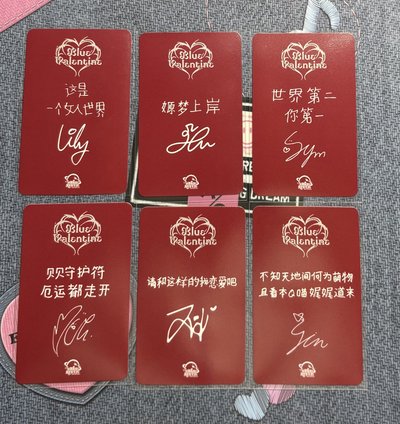 Blue
Valentine
这是
一个女人世界
Lily
Blue
Valentine
嫄梦上岸
Blue
Valentine
世界第二
你第一
Sym
Blue
Valentine
贝贝守护符
厄运都走开
Blue
Valentine
请和这样的我恋爱吧
Blue
Valentine
不知天地间何为萌物
且看本Q喵娓娓道来
DREAM